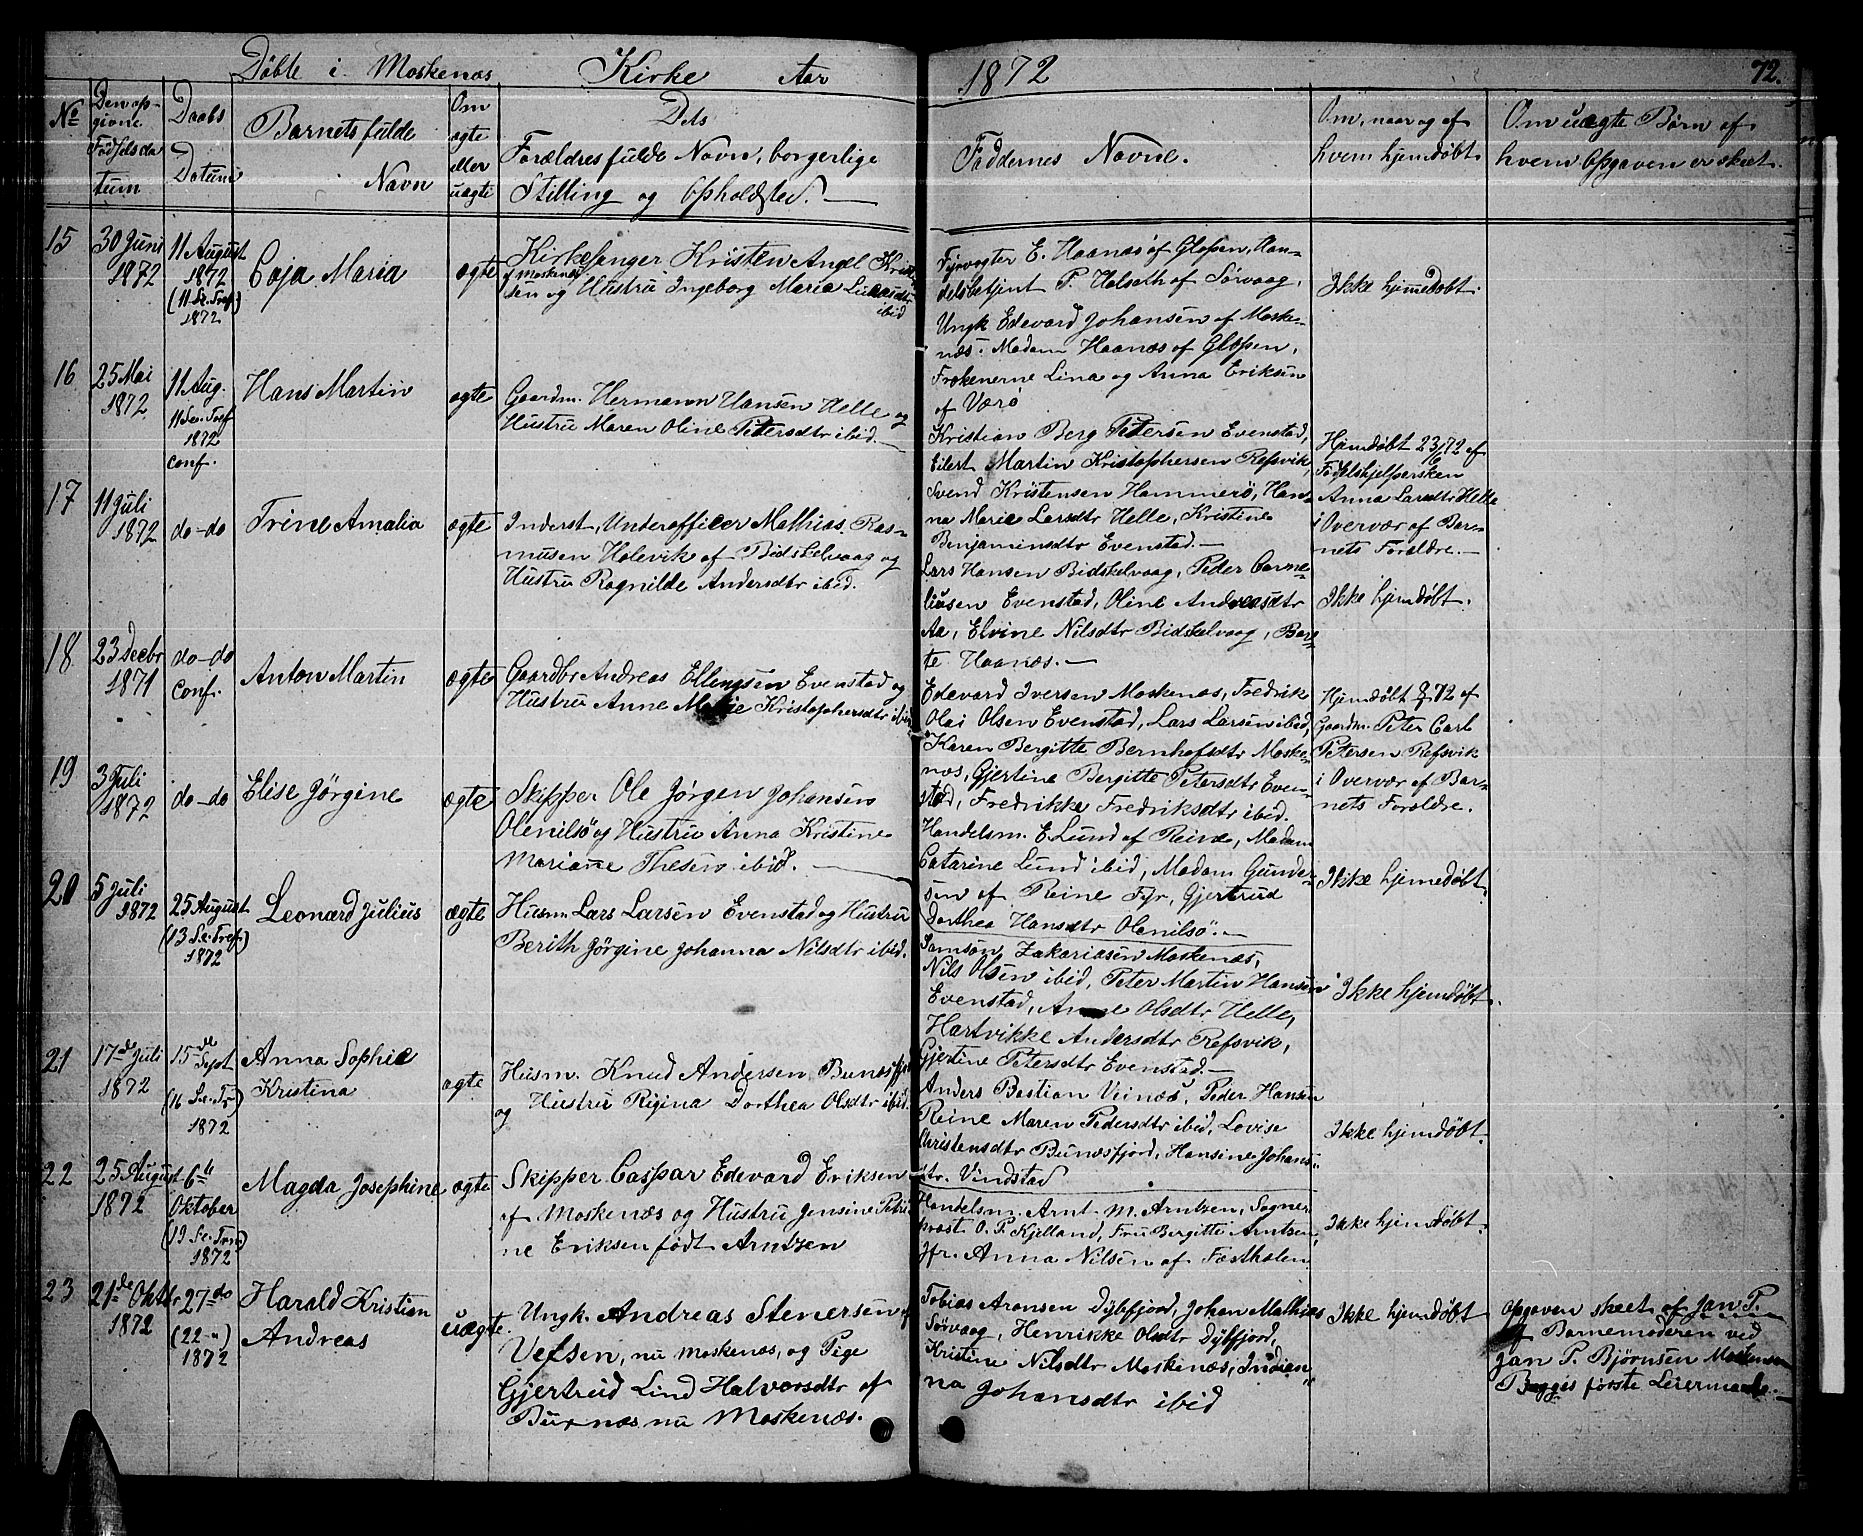 Døbte i Moskenæs Kirke Aar 1872
72.
№
Den op-
givne
Fødselsda
tum
Daabs
Datum
Barnets fulde
Navn
Om
ægte
eller
uægte
Dets
Forældres fulde Navn, borgerlige
Stilling og Opholdsted.
Faddernes Navne.
Om, naar og af
hvem hjemdøbt
Om uægte Børn af
hvem Opgaven er skeet.
15
30 Juni
1872
11 August
1872
(11 S. e. Tref.)
1872
Caja Maria
ægte
Kirkesanger Kristen Angel Krist
af Moskenæs
sen og Hustru Ingeborg Maria Lucasdtr
ibid
Fyrvogter E. Haanæs af Glopen, Han-
delsbetjent P. Holseth af Sørvaag,
Ungk Edevard Johansen af Moske-
næs. Madam Haanæs af Glopen,
Frøkenerne Lina og Anna Eriksen
af Værø
Ikke hjemedøbt.
16
25 Mai
1872
11 Aug.
11 S. e. Tref
1872
conf.
Hans Martin
ægte
Gaardm. Hermann Hansen Helle og
Hustru Maren Oline Petersdtr ibid.
Kristian Berg Petersen Evenstad,
Eilert Martin Kristophersen Refsvik,
Svend Kristensen Hammerø, Han-
na Marie Larsdtr Helle, Kristine
Benjaminsdtr Evenstad.
Hjemdøbt 23/6 72 af
Fødselshjelpersken
Anna Larsdtr Helle
i Overvær af Bar-
nets Forældre.
17
11 Juli
1872
do-do
Trine Amalia
ægte
Inderst, Underofficer Mathias Ras-
musen Holevik af Bidskelvaag og
Hustru Ragnilde Andersdtr ibid.
Lars Hansen Bidskelvaag, Peder Corne-
liusen Evenstad, Oline Andreasdtr
Aa, Elvine Nilsdtr Bidskelvaag, Bar-
te Haanæs.
Ikke hjemdøbt.
18
23 Decbr
1871
do-do
conf.
Anton Martin
ægte
Gaardbr Andreas Ellingsen Evenstad og
Hustru Anne Marie Kristophersdtr ibid
Edevard Iversen Moskenæs, Fredrik
Olai Olsen Evenstad, Lars Larsen ibid,
Karen Bergitte Bernhofsdtr Moske-
næs, Gjertine Bergitte Petersdtr Even-
stad, Fredrikke Fredriksdtr ibid.
Hjemdøbt 72 af
Gaardm. Peter Carl
Petersen Refsvik
i Overvær af Bar-
nets Forældre.
19
3 Juli
1872
do-do
Elise Jørgine
ægte
Skipper Ole Jørgen Johansen
Olenilsø og Hustru Anna Kristine
Marianne Thesen ibid.
Handelsm. E. Lund af Reine, Madam
Catarine Lund ibid, Madam Gunder-
sen af Reine Fyr, Gjertrud
Dorthea Hansdtr Olenilsø.
Ikke hjemedøbt.
20
5 Juli
1872
25 August
(13 S. e. Tref.)
1872
Leonard Julius
ægte
Husm. Lars Larsen Evenstad og Hustru
Berith Jørgine Johanna Nilsdtr ibid.
Samson Zakariasen Moskenæs,
Nils Olsen ibid, Peter Martin Hansen
Evenstad, Anne Olsdtr Helle,
Hartvikke Andersdtr Refsvik,
Gjertine Petersdtr Evenstad.
Ikke hjemdøbt.
21
17de Juli
1872
15de
Sept
(16 S. e. Tr)
1872
Anna Sophie
Kristina
ægte
Husm. Knud Andersen Bunesfj
og Hustru Rigina Dorthea Olsdtr ibid.
Anders Bastian Veinæs, Peder Hansen
Reine Maren Pedersdtr ibid, Lovise
Christensdtr Bunesfjord, Hansine Johans-
dtr. Vindstad
Ikke hjemdøbt.
22
25 August
1872
6te
Oktober
(19 S. e. Trin)
1872
Magda Josephine
ægte
Skipper Caspar Edevard Eriksen
af Moskenæs og Hustru Jensine Petri
ne Eriksen født Arntzen
Handelsm. Arnt M. Arntzen, Sogne-
præst O. P. Kjelland, Fru Bergitte Arntsen,
Jfr. Anna Nilsen af Fæsthælen
Ikke hjemdøbt.
23
21de Oktbr
1872
27de do
(22 - ")
1872
Harald Kristian
Andreas
uægte.
Ungk. Andreas Stenersen af
Vefsen, nu Moskenæs, og Pige
Gjertrud Lind Halvorsdtr af
Burnæs nu Moskenæs.
Tobias Aronsen Dybfjord, Johan Mathias
Sørvaag, Henrikke Olsdtr Dybfjord,
Kristine Nilsdtr Moskenæs, Indian-
na Johansdtr ibid
Ikke hjemdøbt
Opgaven skeet af Jan P.
af Barnemoderen ved
Jan P. Bjørnsen Moskenæs
Begges første Leiermaal.